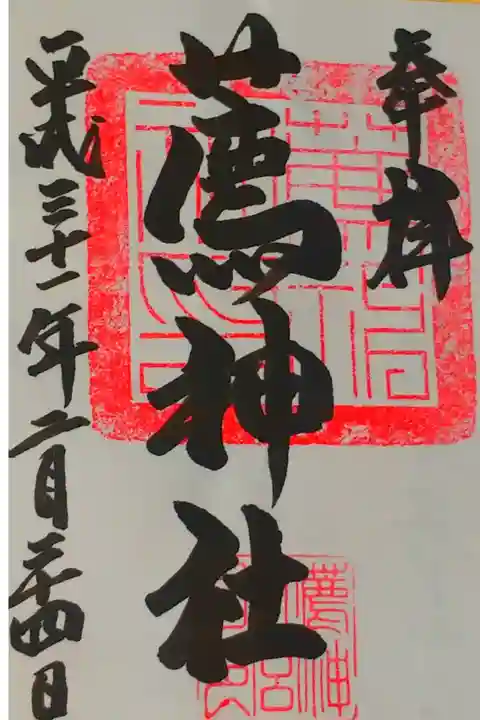 奉拝
薦神社
平成三十一年二月二十四日